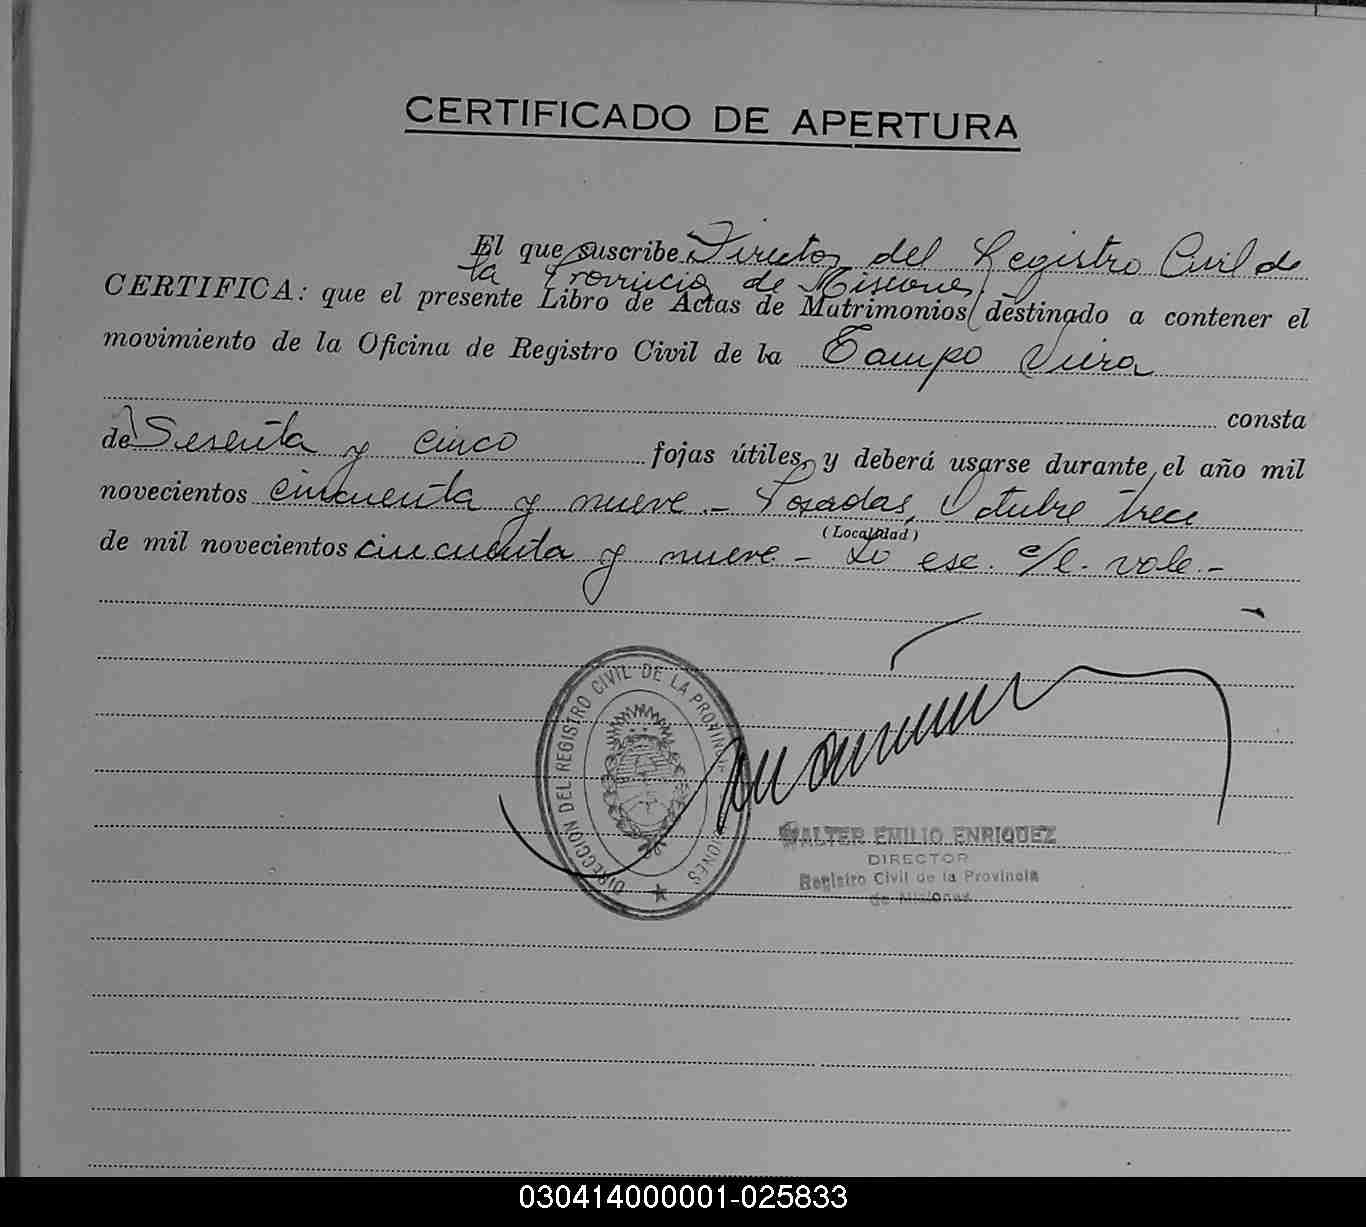 CERTIFICADO DE APERTURA
El que suscribe Director del Registro Civil de
la Provincia de Misiones
CERTIFICA: que el presente Libro de Actas de Matrimonios destinado a contener el
movimiento de la Oficina de Registro Civil de la Campo Viera
consta
de Sesenta y cinco fojas útiles, y deberá usarse durante el año mil
novecientos cincuenta y nueve.- Posadas, Octubre trece
(Localidad)
de mil novecientos cincuenta y nueve - Lo esc. e/l. vale.-
DIRECCION DEL REGISTRO CIVIL DE LA PROVINCIA MISIONES
WALTER EMILIO ENRIQUEZ
DIRECTOR
Registro Civil de la Provincia
de Misiones
030414000001-025833